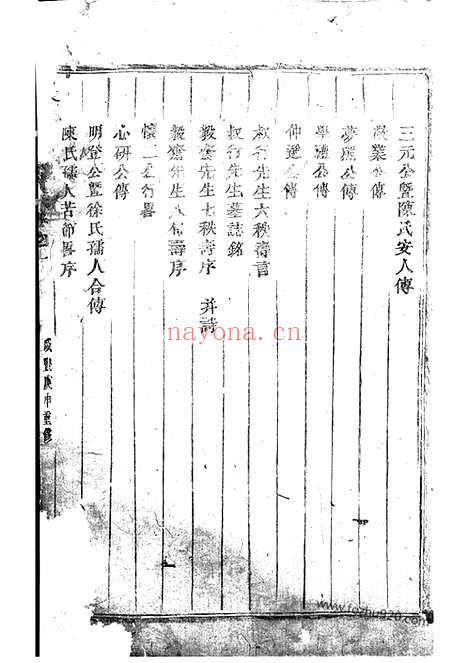 三元公暨陳氏安人傳
業公傳
夢熊公傳
學禮公傳
仲選公傳
叔行先生六秩壽言
叔行先生墓誌銘
毅齋先生七秩壽序 并詩
毅齋先生八旬壽序
懷二公行畧
心研公傳
明登公暨徐氏孺人合傳
陳氏孺人苦節畧序
庚申重修
nayona.cn
www.fozhu920.com